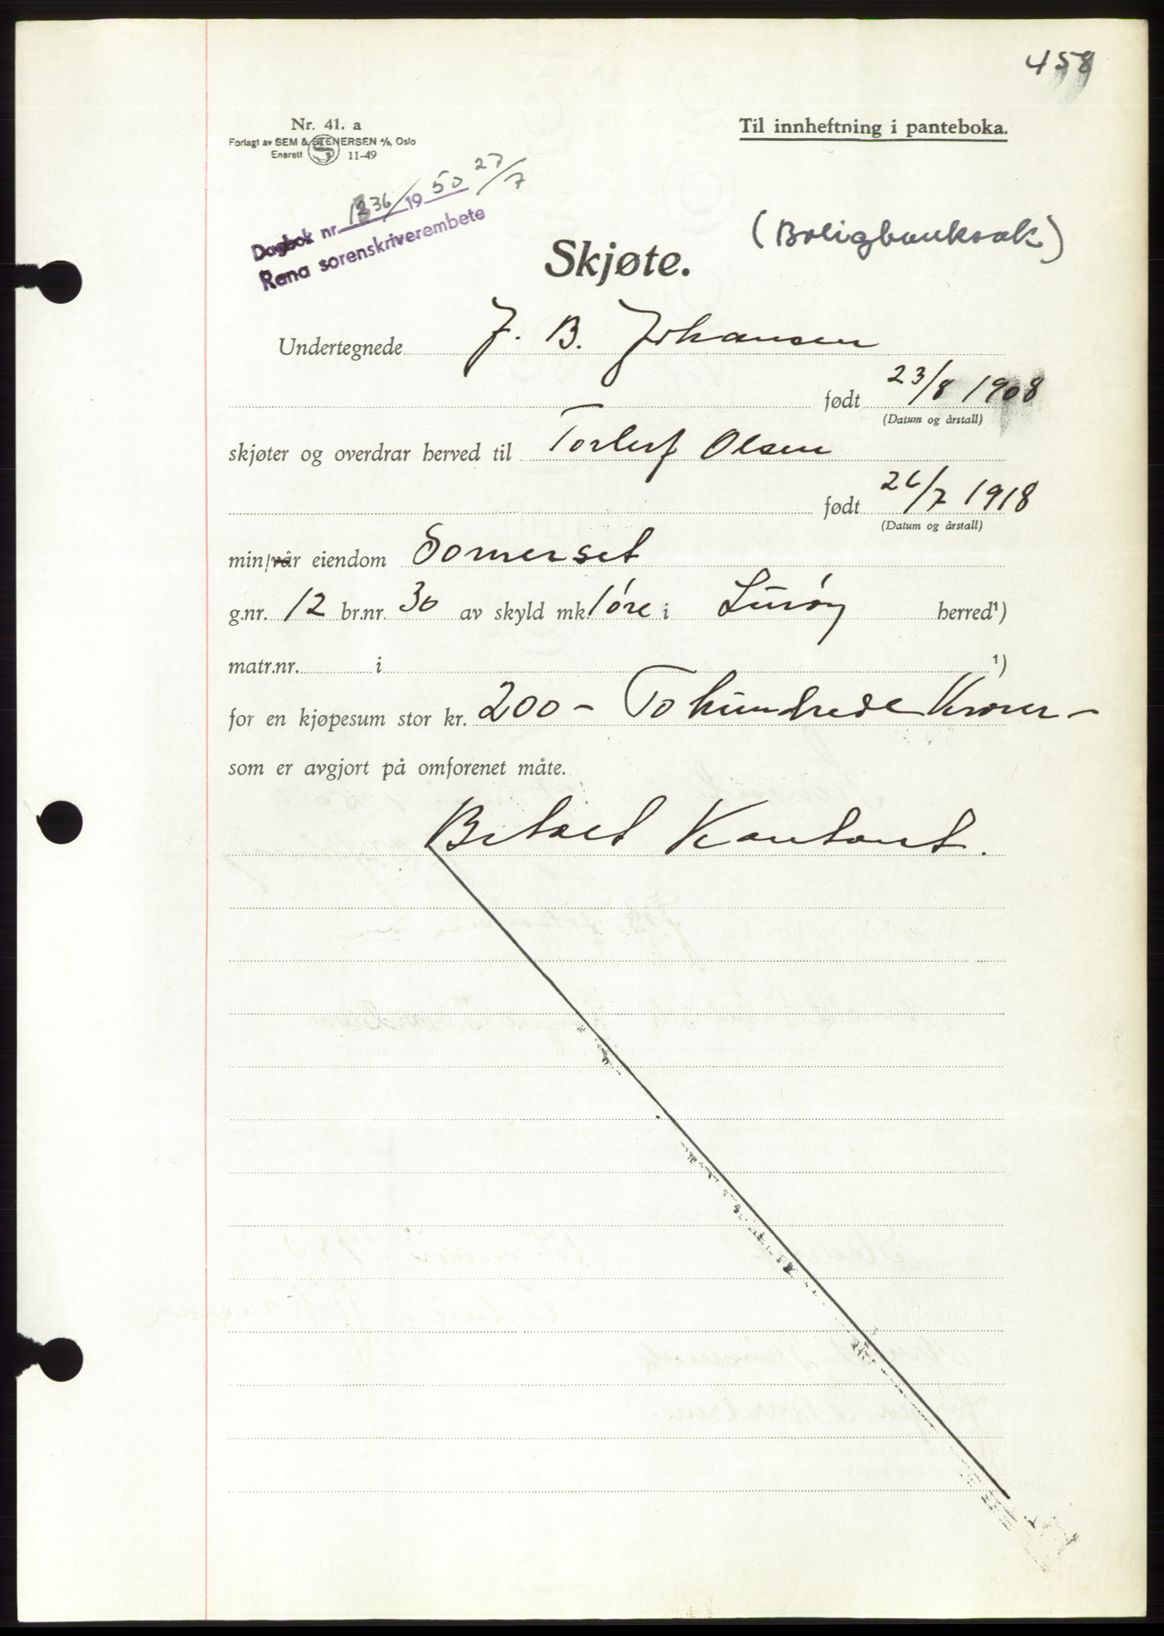 458
Nr. 41. a
Forlagt av SEM & STENERSEN A/S, Oslo
Enerett 11-49
Til innheftning i panteboka.
Dagbok nr. 1336/1950 27/7
Rana sorenskriverembete
(Boligbanksak)
Skjøte.
Undertegnede J. B. Johansen
født 23/8 1908
(Datum og årstall)
skjøter og overdrar herved til Torleif Olsen
født 26/7 1918
(Datum og årstall)
min/vår eiendom Somerset
g.nr. 12 br.nr. 30 av skyld mk. 1 øre i Lurøy herred¹)
matr.nr. i ¹)
for en kjøpesum stor kr. 200 – To hundrede Kroner –
som er avgjort på omforenet måte.
Betalt Kontant.